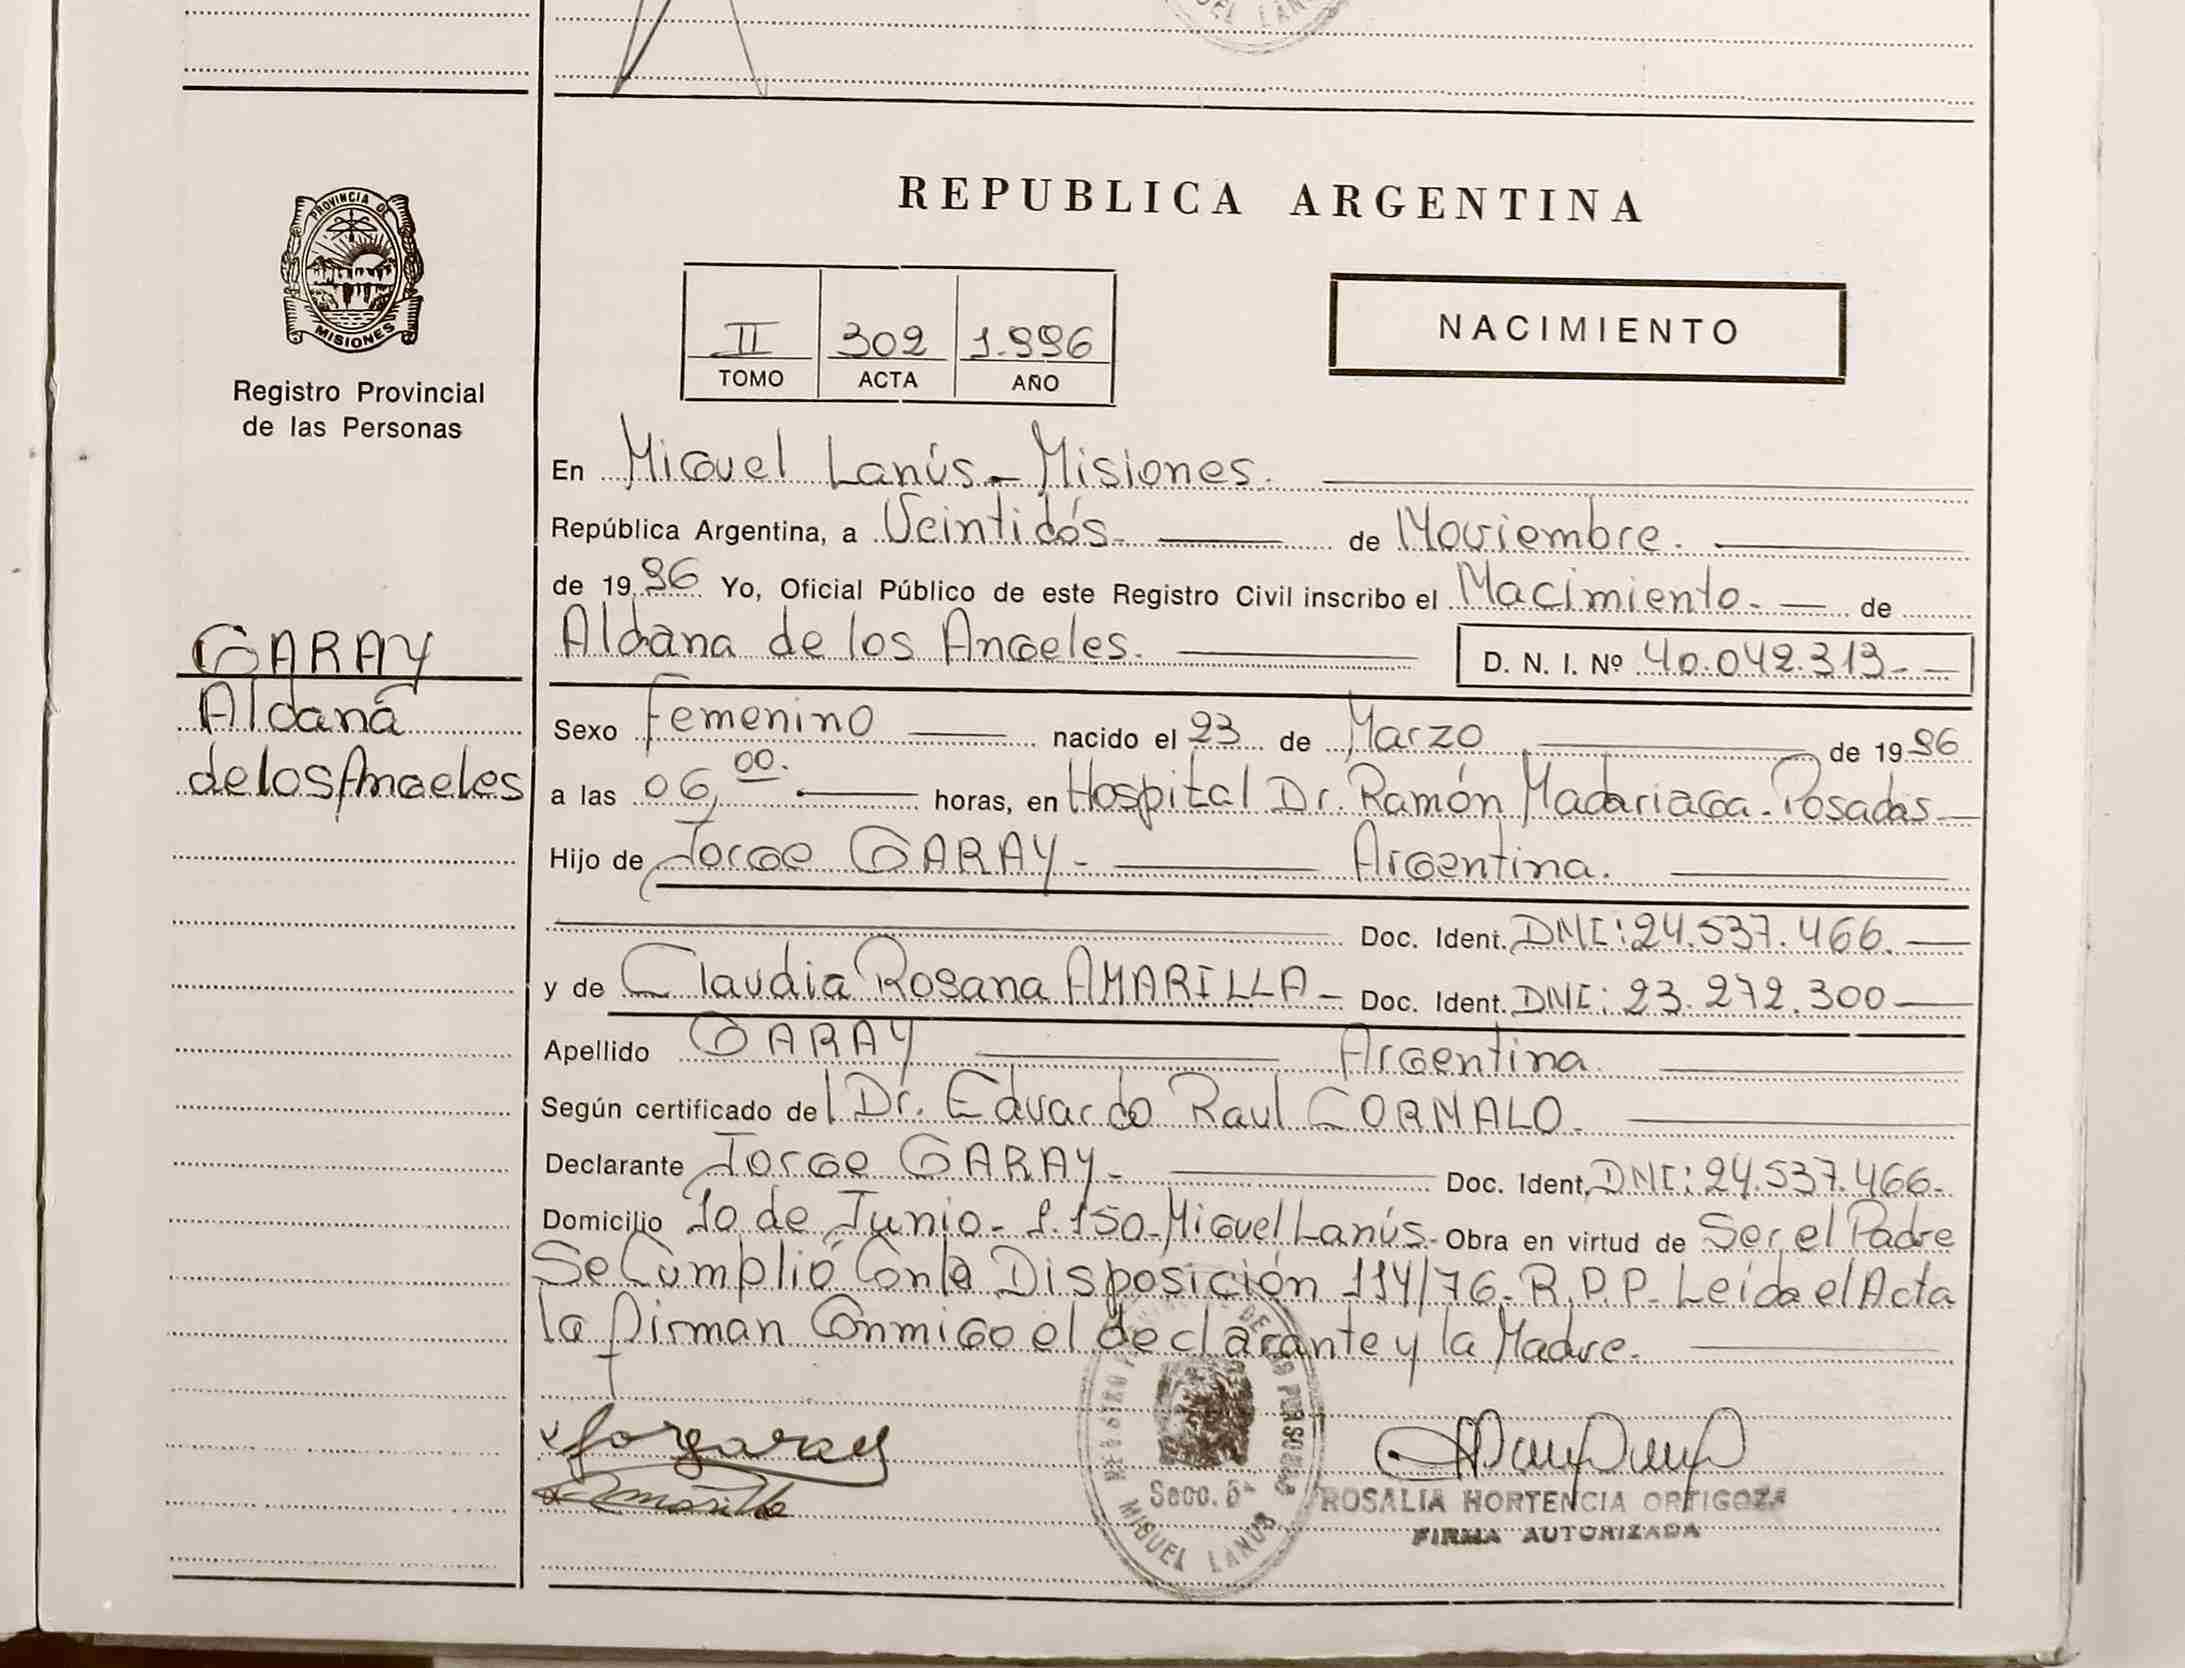 REPUBLICA ARGENTINA
PROVINCIA DE
MISIONES
Registro Provincial
de las Personas
II 302 1.996
TOMO ACTA AÑO
NACIMIENTO
En Miguel Lanús - Misiones.
República Argentina, a Veintidós. de Noviembre.
de 1996 Yo, Oficial Público de este Registro Civil inscribo el Nacimiento. de
Aldana de los Angeles. D. N. I. Nº 40.042.313.
GARAY
Aldana
de los Angeles
Sexo Femenino nacido el 23 de Marzo de 1996
a las 06,00. horas, en Hospital Dr. Ramón Madariaga. Posadas
Hijo de Jorge GARAY - Argentina.
Doc. Ident. DNI: 24.537.466.
y de Claudia Rosana AMARILLA - Doc. Ident. DNI: 23.272.300
Apellido GARAY Argentina
Según certificado del Dr. Eduardo Raul CORNALO.
Declarante Jorge GARAY. Doc. Ident. DNI: 24.537.466.
Domicilio 10 de Junio - 1.150 - Miguel Lanús. Obra en virtud de Ser el Padre
Se Cumplió Con la Disposición 114/76. R.P.P. Leída el Acta
la firman Conmigo el declarante y la Madre.
Jorgaray
Amarilla
Secc. 5ª
MIGUEL LANUS
ROSALIA HORTENCIA ORTIGOZA
FIRMA AUTORIZADA